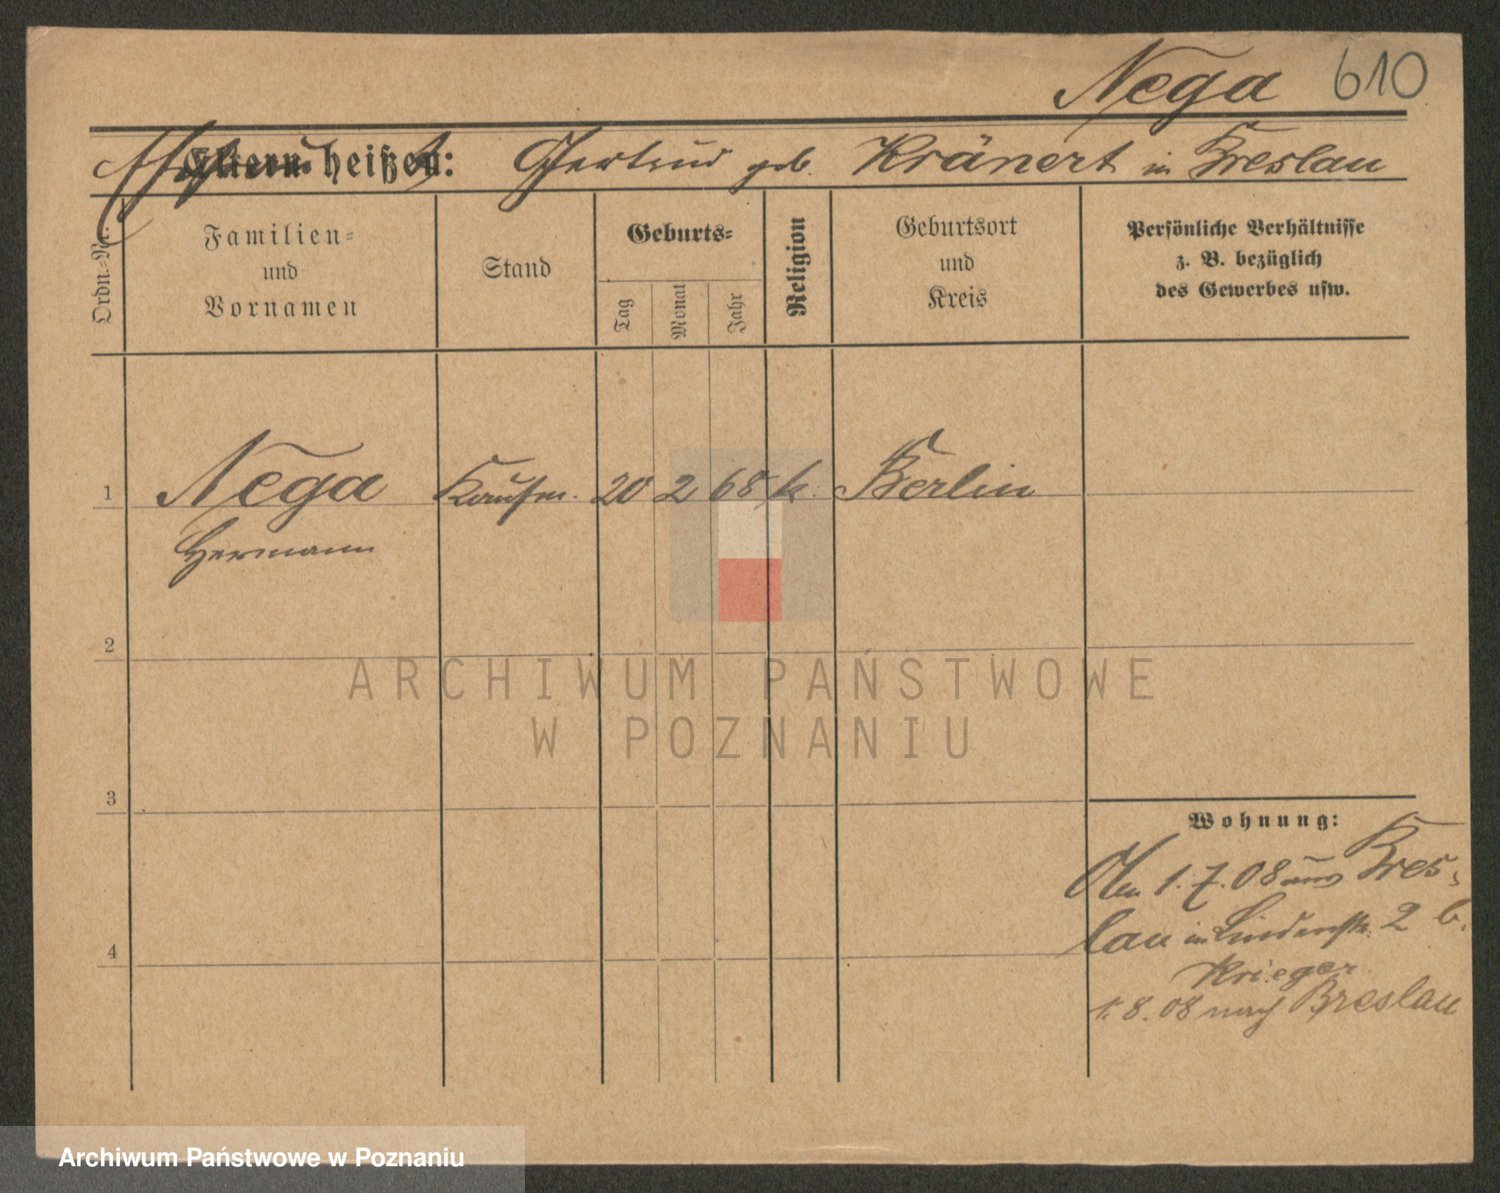 Nega 610
Eltern heißen: Gertrud geb. Kränert in Breslau
Ordn.-Nr.
Familien-
und
Vornamen
Stand
Geburts-
Tag
Monat
Jahr
Religion
Geburtsort
und
Kreis
Persönliche Verhältnisse
z. B. bezüglich
des Gewerbes usw.
1 Nega Kaufm. 20 2 68 k. Berlin
Hermann
2
3
4
ARCHIWUM PAŃSTWOWE
W POZNANIU
Wohnung:
1.7.08 aus Bres-
lau in Lindenstr. 2 b.
Krieger
1.8.08 nach Breslau
Archiwum Państwowe w Poznaniu